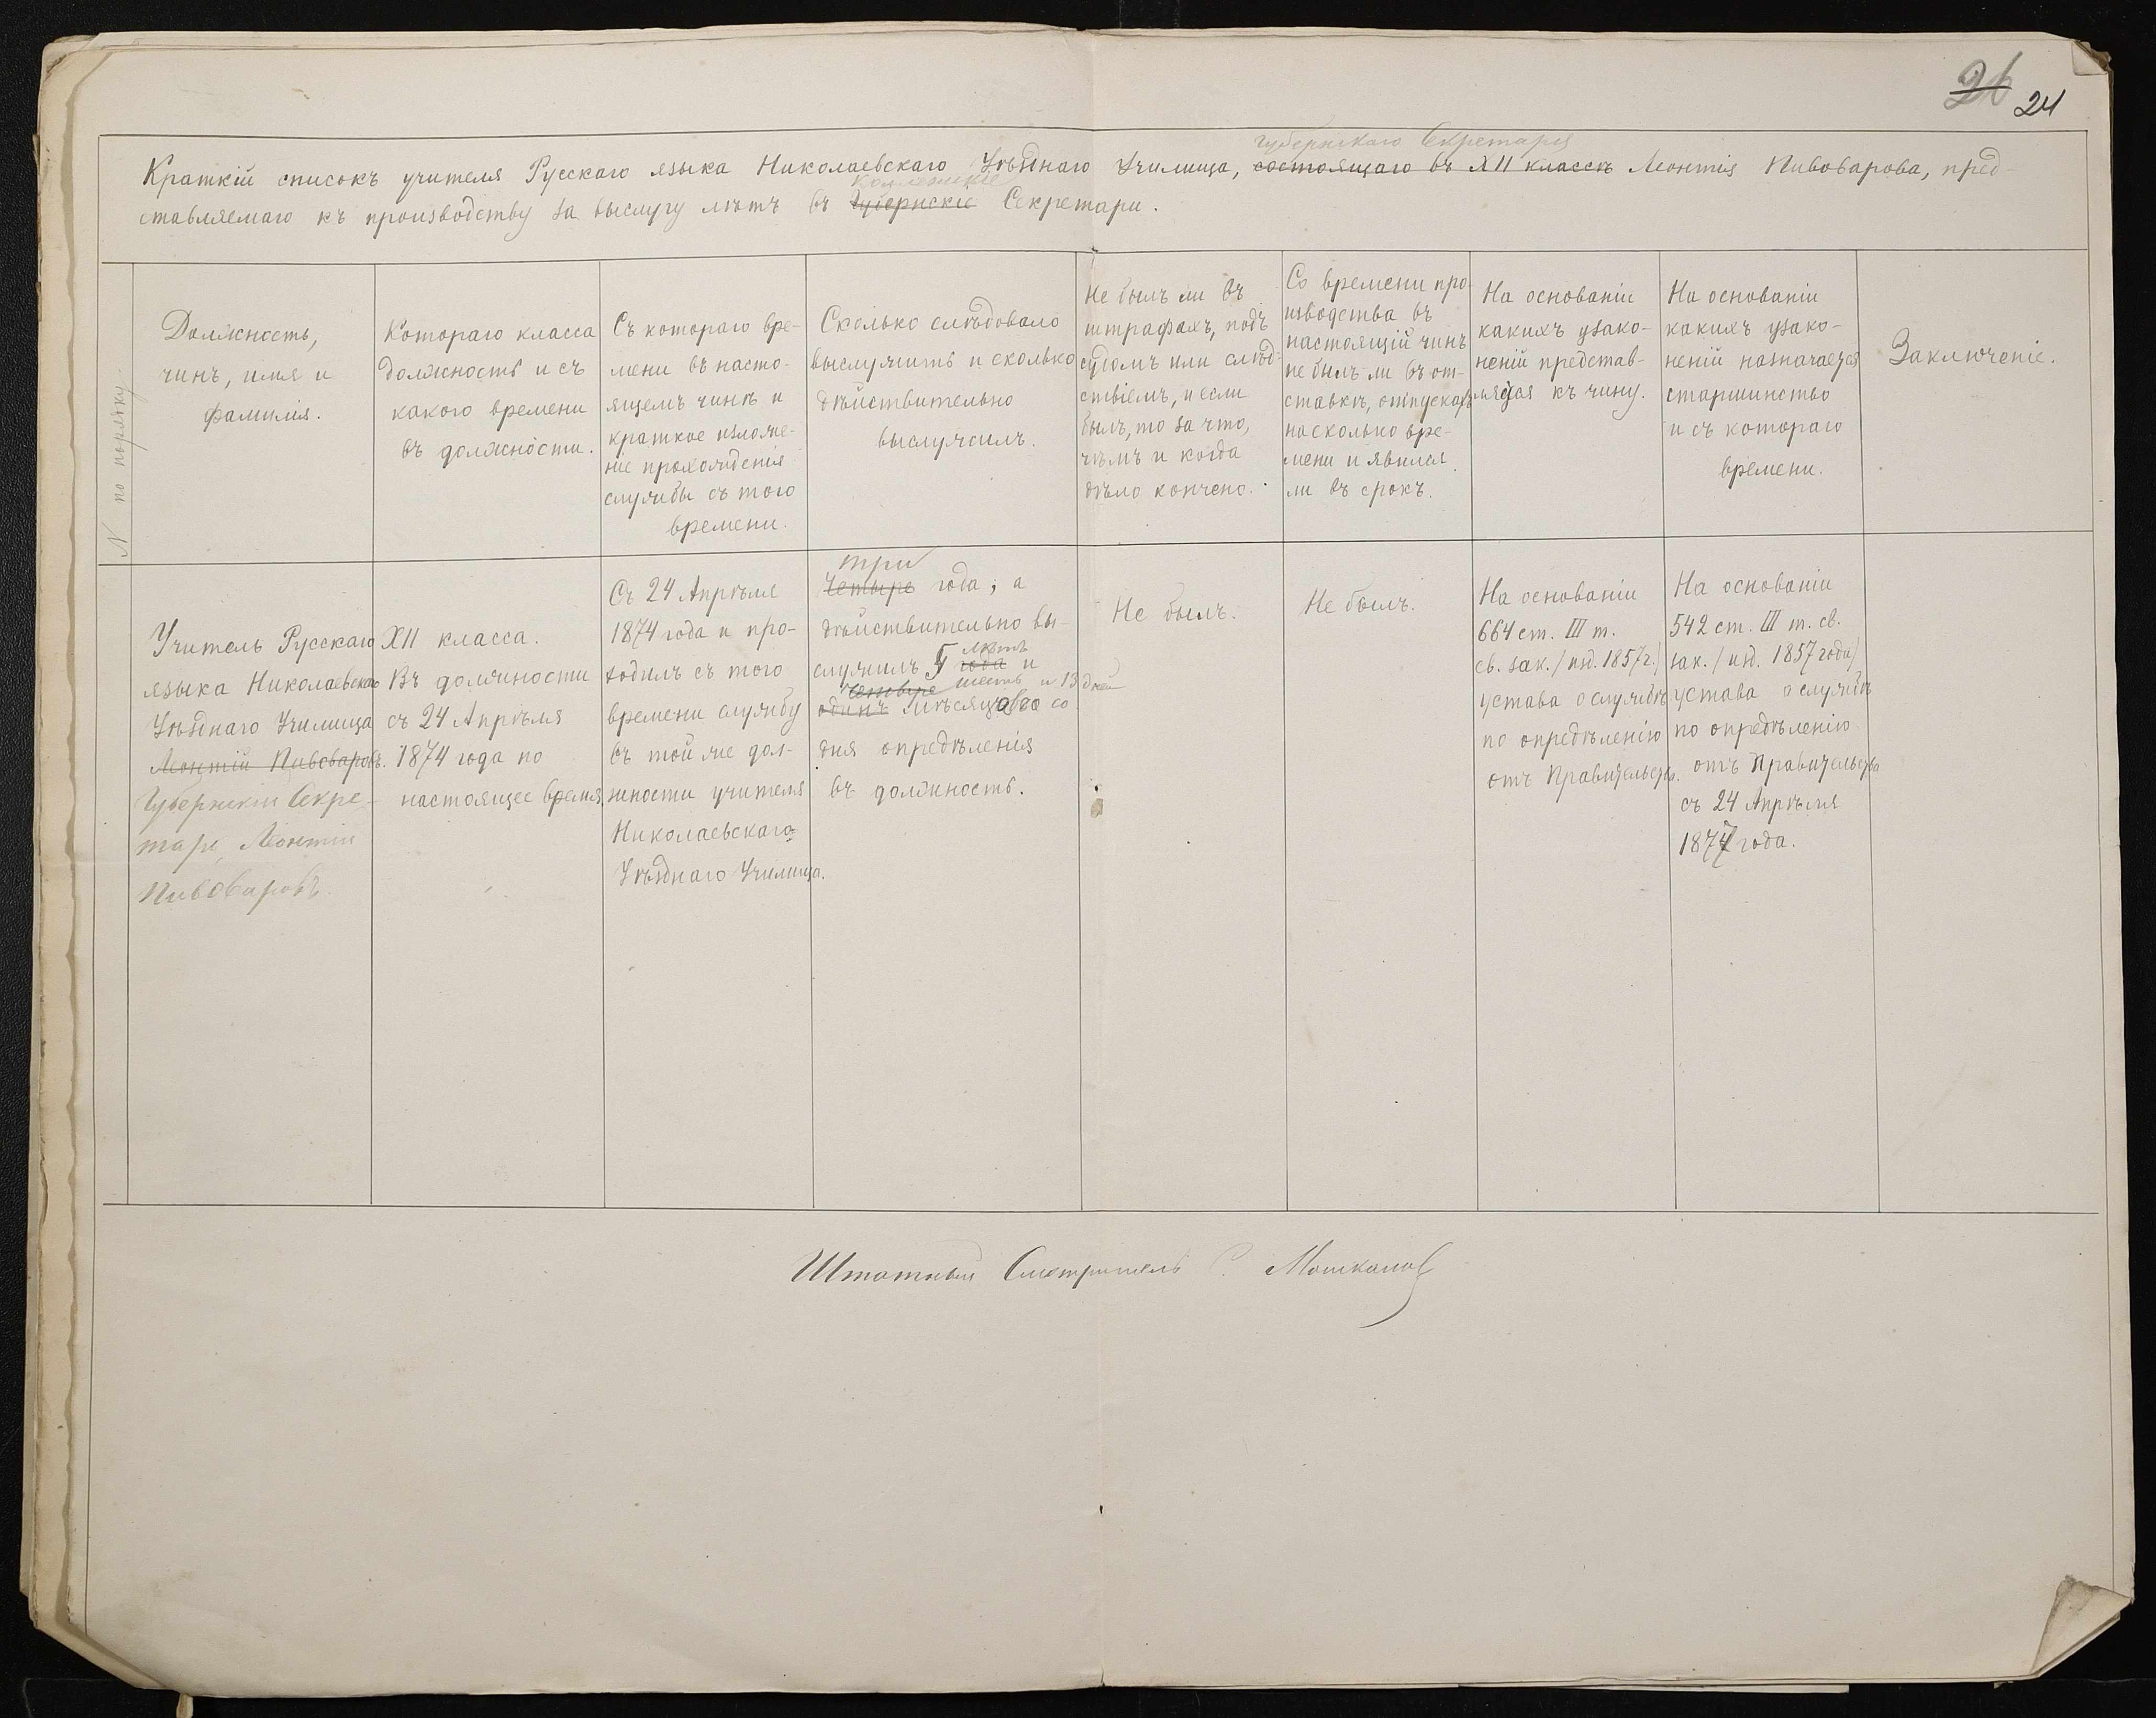 26 24
губернскаго Секретаря
Краткій списокъ учителя Русскаго языка Николаевскаго Уѣзднаго Училища, состоящаго въ XII классѣ Леонтія Пивоварова, пред-
Коллежскіе
ставляемаго къ производству за выслугу лѣтъ въ Губернскіе Секретари.
N по порядку.
Должность,
чинъ, имя и
фамилія.
Котораго класса
должность и съ
какого времени
въ должности.
Съ котораго вре-
мени въ насто-
ящемъ чинѣ и
краткое изложе-
ніе прохожденія
службы съ того
времени.
Сколько слѣдовало
выслужить и сколько
дѣйствительно
выслужилъ.
Не былъ ли въ
штрафахъ, подъ
судомъ или слѣд-
ствіемъ, и если
былъ, то за что,
чѣмъ и когда
дѣло кончено.
Со времени про-
изводства въ
настоящій чинъ
не былъ ли въ от-
ставкѣ, отпускахъ,
насколько вре-
мени и явился
ли въ срокъ.
На основаніи
какихъ узако-
неній представ-
ляется къ чину.
На основаніи
какихъ узако-
неній назначается
старшинство
и съ котораго
времени.
Заключеніе.
Учитель Русскаго
языка Николаевскаго
Уѣзднаго Училища
Леонтій Пивоваровъ.
Губернскій Секре-
тарь Леонтій
Пивоваровъ
XII класса.
Въ должности
съ 24 Апрѣля
1874 года по
настоящее время.
Съ 24 Апрѣля
1874 года и про-
ходилъ съ того
времени службу
въ той же дол-
жности учителя
Николаевскаго
Уѣзднаго Училища.
три
Четыре года; а
дѣйствительно вы-
лѣтъ
служилъ 5 года и
четыре шесть и 13 дней
одинъ мѣсяцовъ со
дня опредѣленія
въ должность.
Не былъ.
Не былъ.
На основаніи
664 ст. III т.
св. зак. / изд. 1857 г./
устава о службѣ
по опредѣленію
отъ Правительства.
На основаніи
542 ст. III т. св.
зак. / изд. 1857 года/
устава о службѣ
по опредѣленію
отъ Правительства
съ 24 Апрѣля
1877 года.
Штатный Смотритель С. Мошкановъ